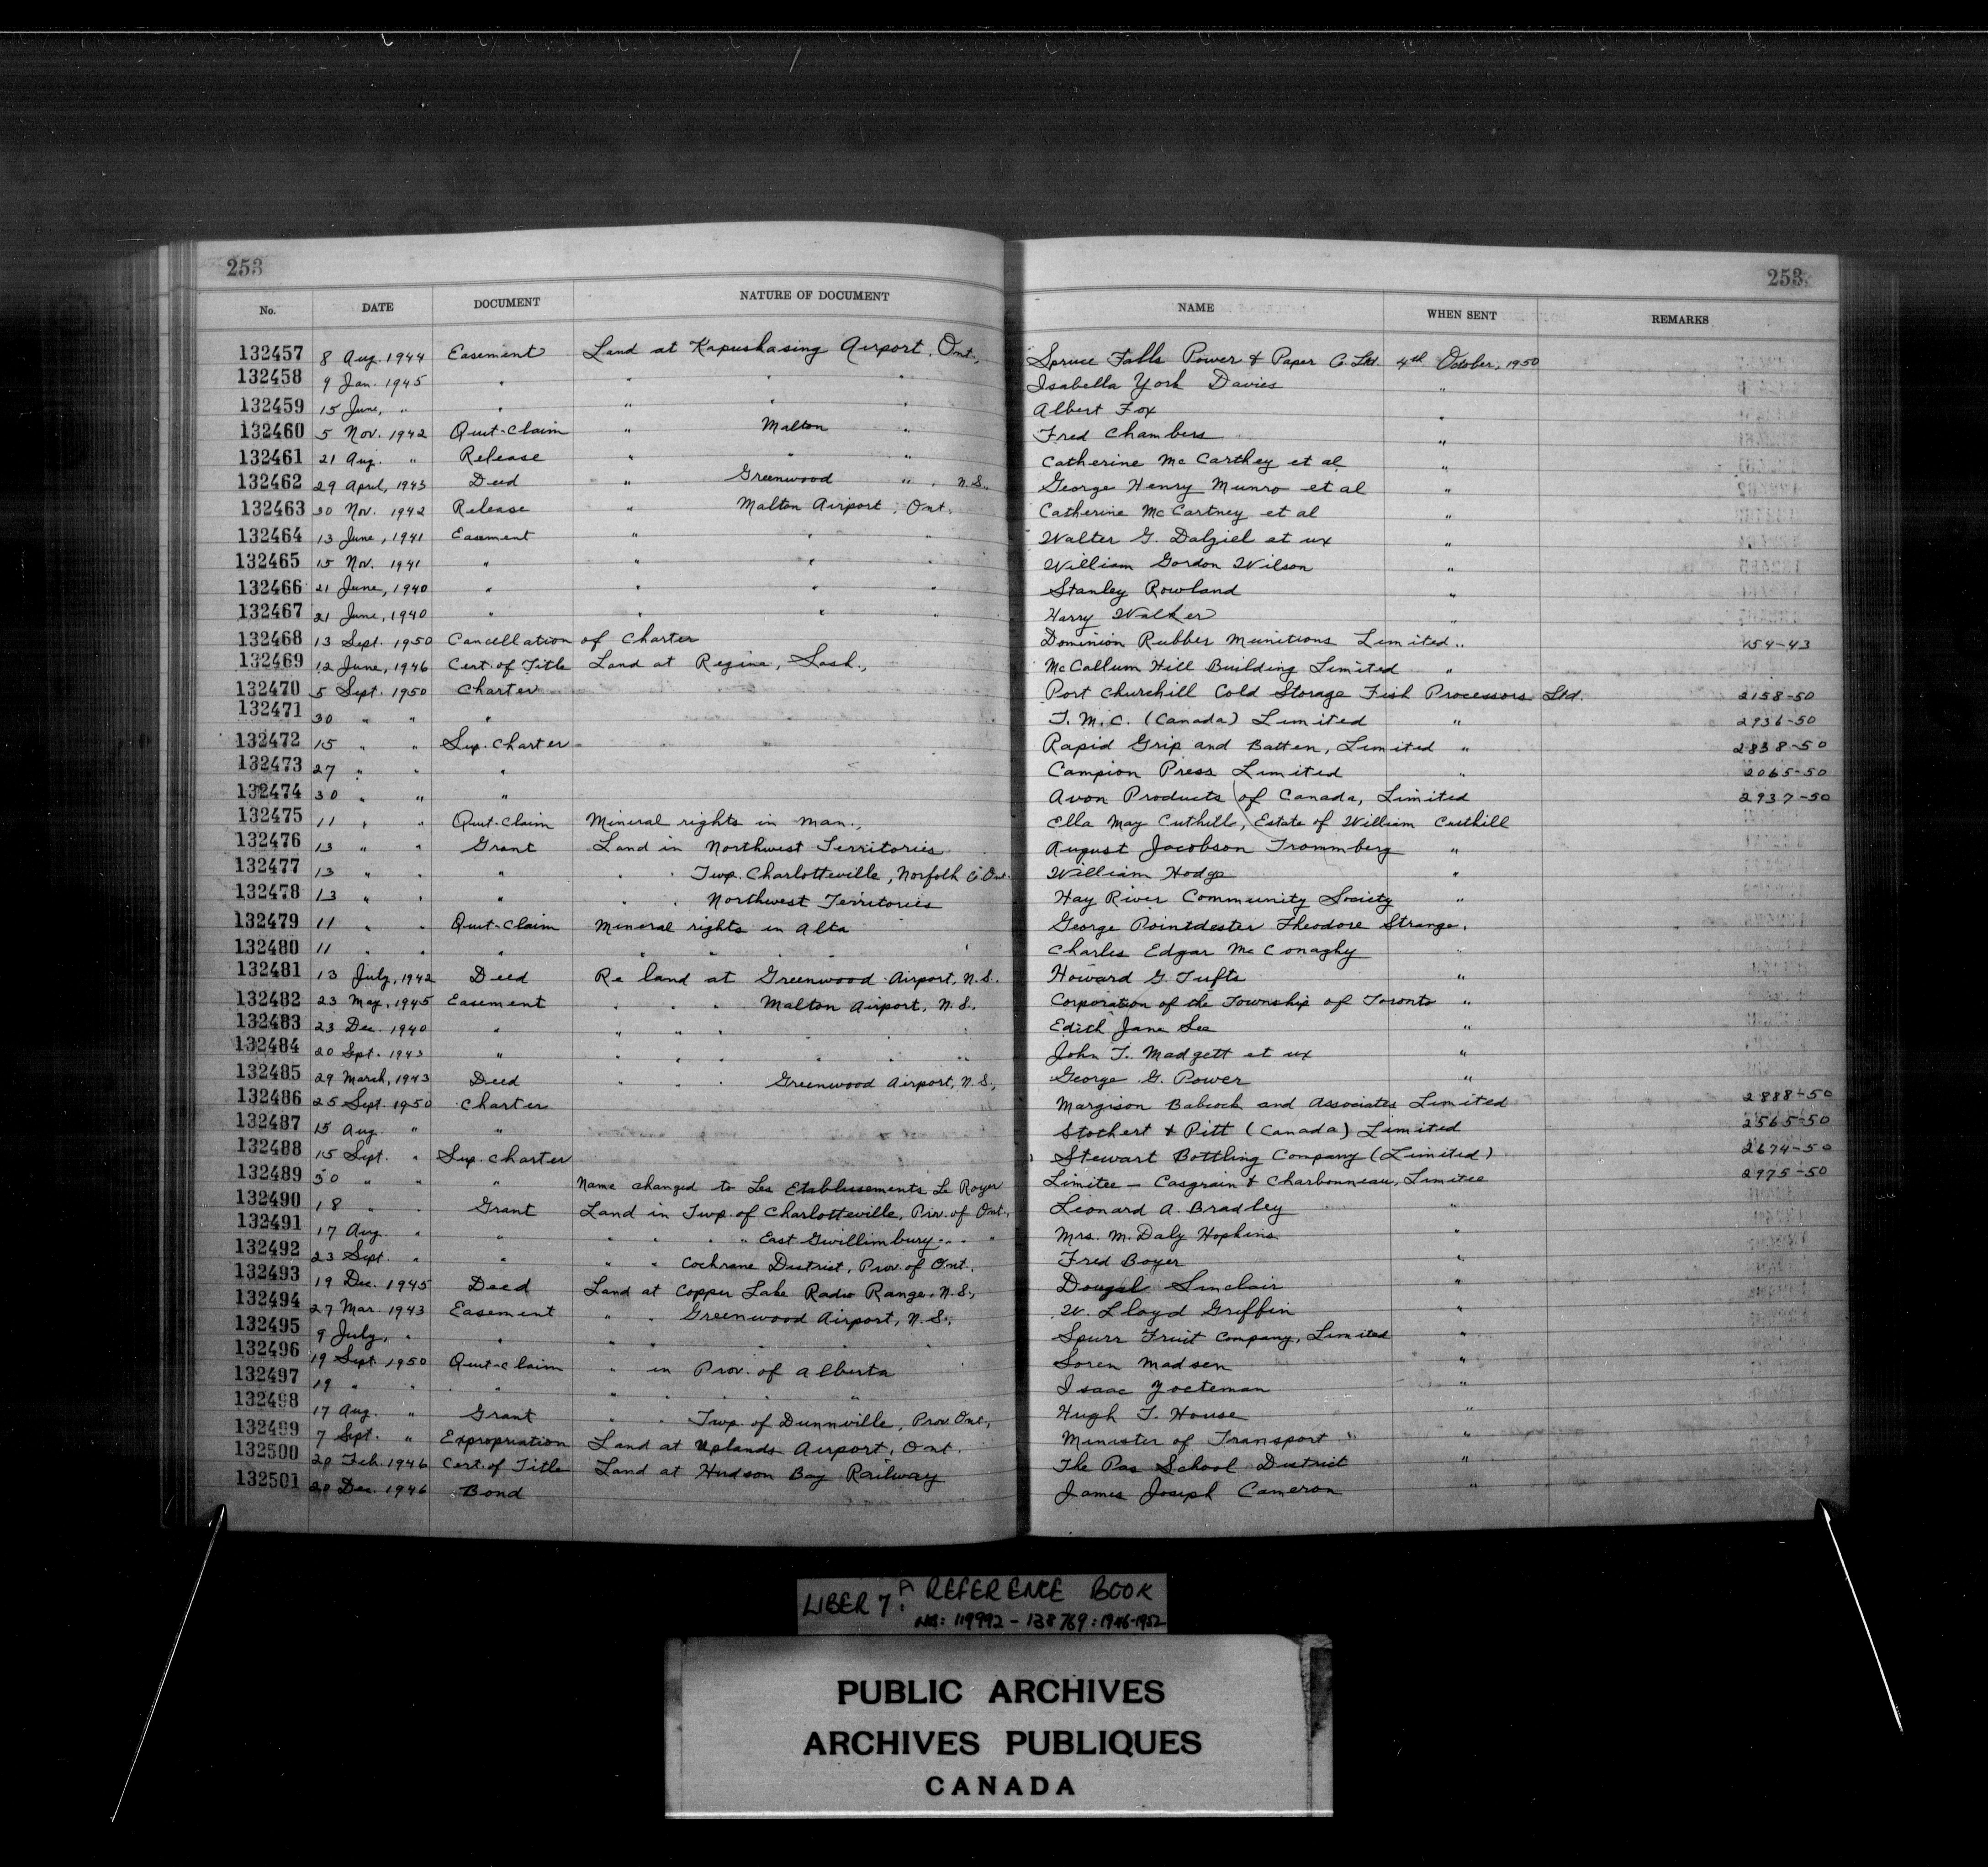 253 253
No. DATE DOCUMENT NATURE OF DOCUMENT NAME WHEN SENT REMARKS
132457 8 Aug. 1944 Easement Land at Kapuskasing Airport, Ont., Spruce Falls Power & Paper Co. Ltd. 4th October, 1950
132458 9 Jan. 1945 " " " " Isabella York Davies "
132459 15 June, " " " " " Albert Fox "
132460 5 Nov. 1942 Quit-Claim " Malton " Fred Chambers "
132461 21 Aug. " Release " " " Catherine McCarthey et al "
132462 29 April, 1943 Deed " Greenwood " , N.S., George Henry Munro et al "
132463 30 Nov. 1942 Release " Malton Airport, Ont. Catherine McCartney et al "
132464 13 June, 1941 Easement " " " Walter G. Dalziel et ux "
132465 15 Nov. 1941 " " " " William Gordon Wilson "
132466 21 June, 1940 " " " " Stanley Rowland "
132467 21 June, 1940 " " " " Harry Walker "
132468 13 Sept. 1950 Cancellation of Charter Dominion Rubber Munitions Limited " 154-43
132469 12 June, 1946 Cert. of Title Land at Regina, Sask., McCallum Hill Building Limited "
132470 5 Sept. 1950 Charter Port Churchill Cold Storage Fish Processors Ltd. 2158-50
132471 30 " " " T.M.C. (Canada) Limited " 2936-50
132472 15 " " Sup. Charter Rapid Grip and Batten, Limited " 2838-50
132473 27 " " " Campion Press Limited " 2065-50
132474 30 " " " Avon Products of Canada, Limited 2937-50
132475 11 " " Quit-Claim Mineral rights in Man., Ella May Cuthill, Estate of William Cuthill
132476 13 " " Grant Land in Northwest Territories August Jacobson Trommberg "
132477 13 " " " " " Twp. Charlotteville, Norfolk Co Ont. William Hodge "
132478 13 " " " " " Northwest Territories Hay River Community Society "
132479 11 " " Quit-Claim Mineral rights in Alta George Pointdester Theodore Strange.
132480 11 " " " " " " Charles Edgar McConaghy "
132481 13 July, 1942 Deed Re land at Greenwood Airport, N.S. Howard G. Tufts "
132482 23 May, 1945 Easement " " " Malton Airport, N.S. Corporation of the Township of Toronto "
132483 23 Dec. 1940 " " " " " Edith Jane Lee "
132484 20 Sept. 1943 " " " " " " " John T. Madgett et ux "
132485 29 March, 1943 Deed " " " Greenwood Airport, N.S., George G. Power "
132486 25 Sept. 1950 Charter Margison Babcock and Associates Limited 2888-50
132487 15 Aug. " " Stothert & Pitt (Canada) Limited 2565-50
132488 15 Sept. " Sup. Charter Stewart Bottling Company (Limited) 2674-50
132489 30 " " " Name changed to Les Etablissements Le Royer Limitee - Casgrain & Charbonneau, Limitee 2975-50
132490 18 " " Grant Land in Twp. of Charlotteville, Prov. of Ont., Leonard A. Bradley "
132491 17 Aug. " " " " " " East Gwillimbury " " " Mrs. M. Daly Hopkins "
132492 23 Sept. " " " " Cochrane District, Prov. of Ont. Fred Boyer "
132493 19 Dec. 1945 Deed Land at Copper Lake Radio Range, N.S., Dougal Sinclair "
132494 27 Mar. 1943 Easement " " Greenwood Airport, N.S., W. Lloyd Griffin "
132495 9 July, " " " " " " Spurr Fruit Company, Limited "
132496 19 Sept 1950 Quit-claim " in Prov. of Alberta Soren Madsen "
132497 19 " " " " " " " Isaac Yoeteman "
132498 17 Aug. " Grant " " Twp. of Dunnville, Prov. Ont., Hugh T. House "
132499 7 Sept. " Expropriation Land at Uplands Airport, Ont. Minister of Transport "
132500 20 Feb. 1946 Cert. of Title Land at Hudson Bay Railway The Pas School District "
132501 20 Dec. 1946 Bond James Joseph Cameron "
LIBER 7A: REFERENCE BOOK
NOS: 119992 - 138769: 1946-1952
PUBLIC ARCHIVES
ARCHIVES PUBLIQUES
CANADA